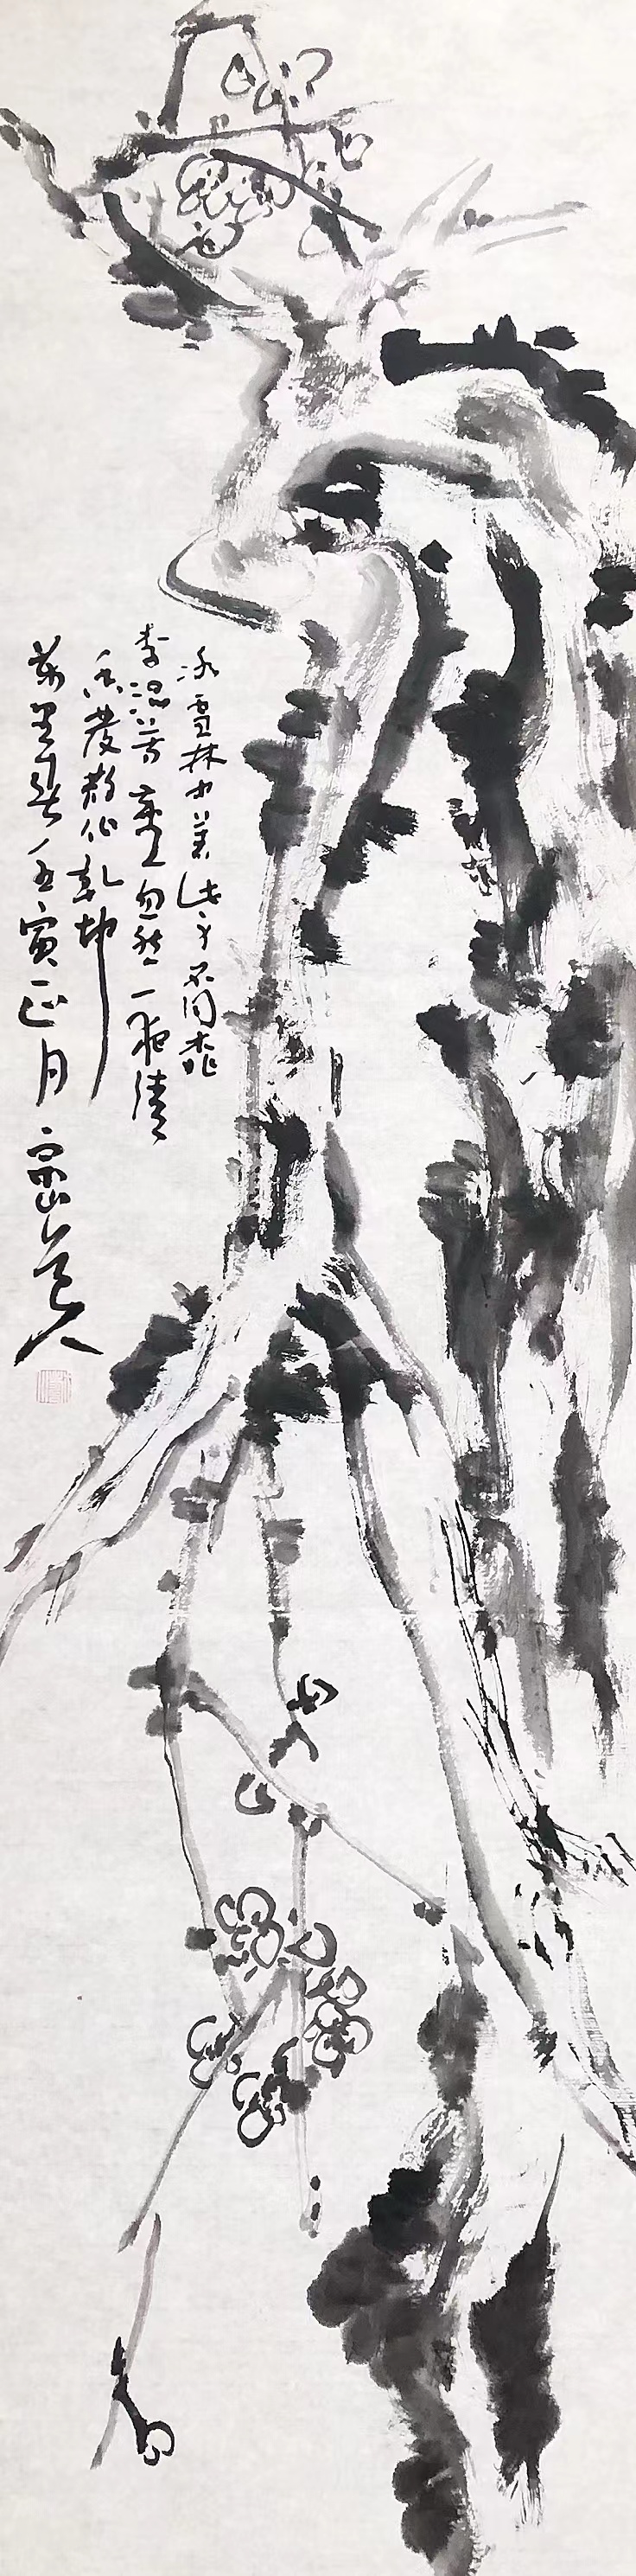 冰雪林中著此身不同桃
李混芳塵忽然一夜清
香發散作乾坤
萬里春壬寅正月道人